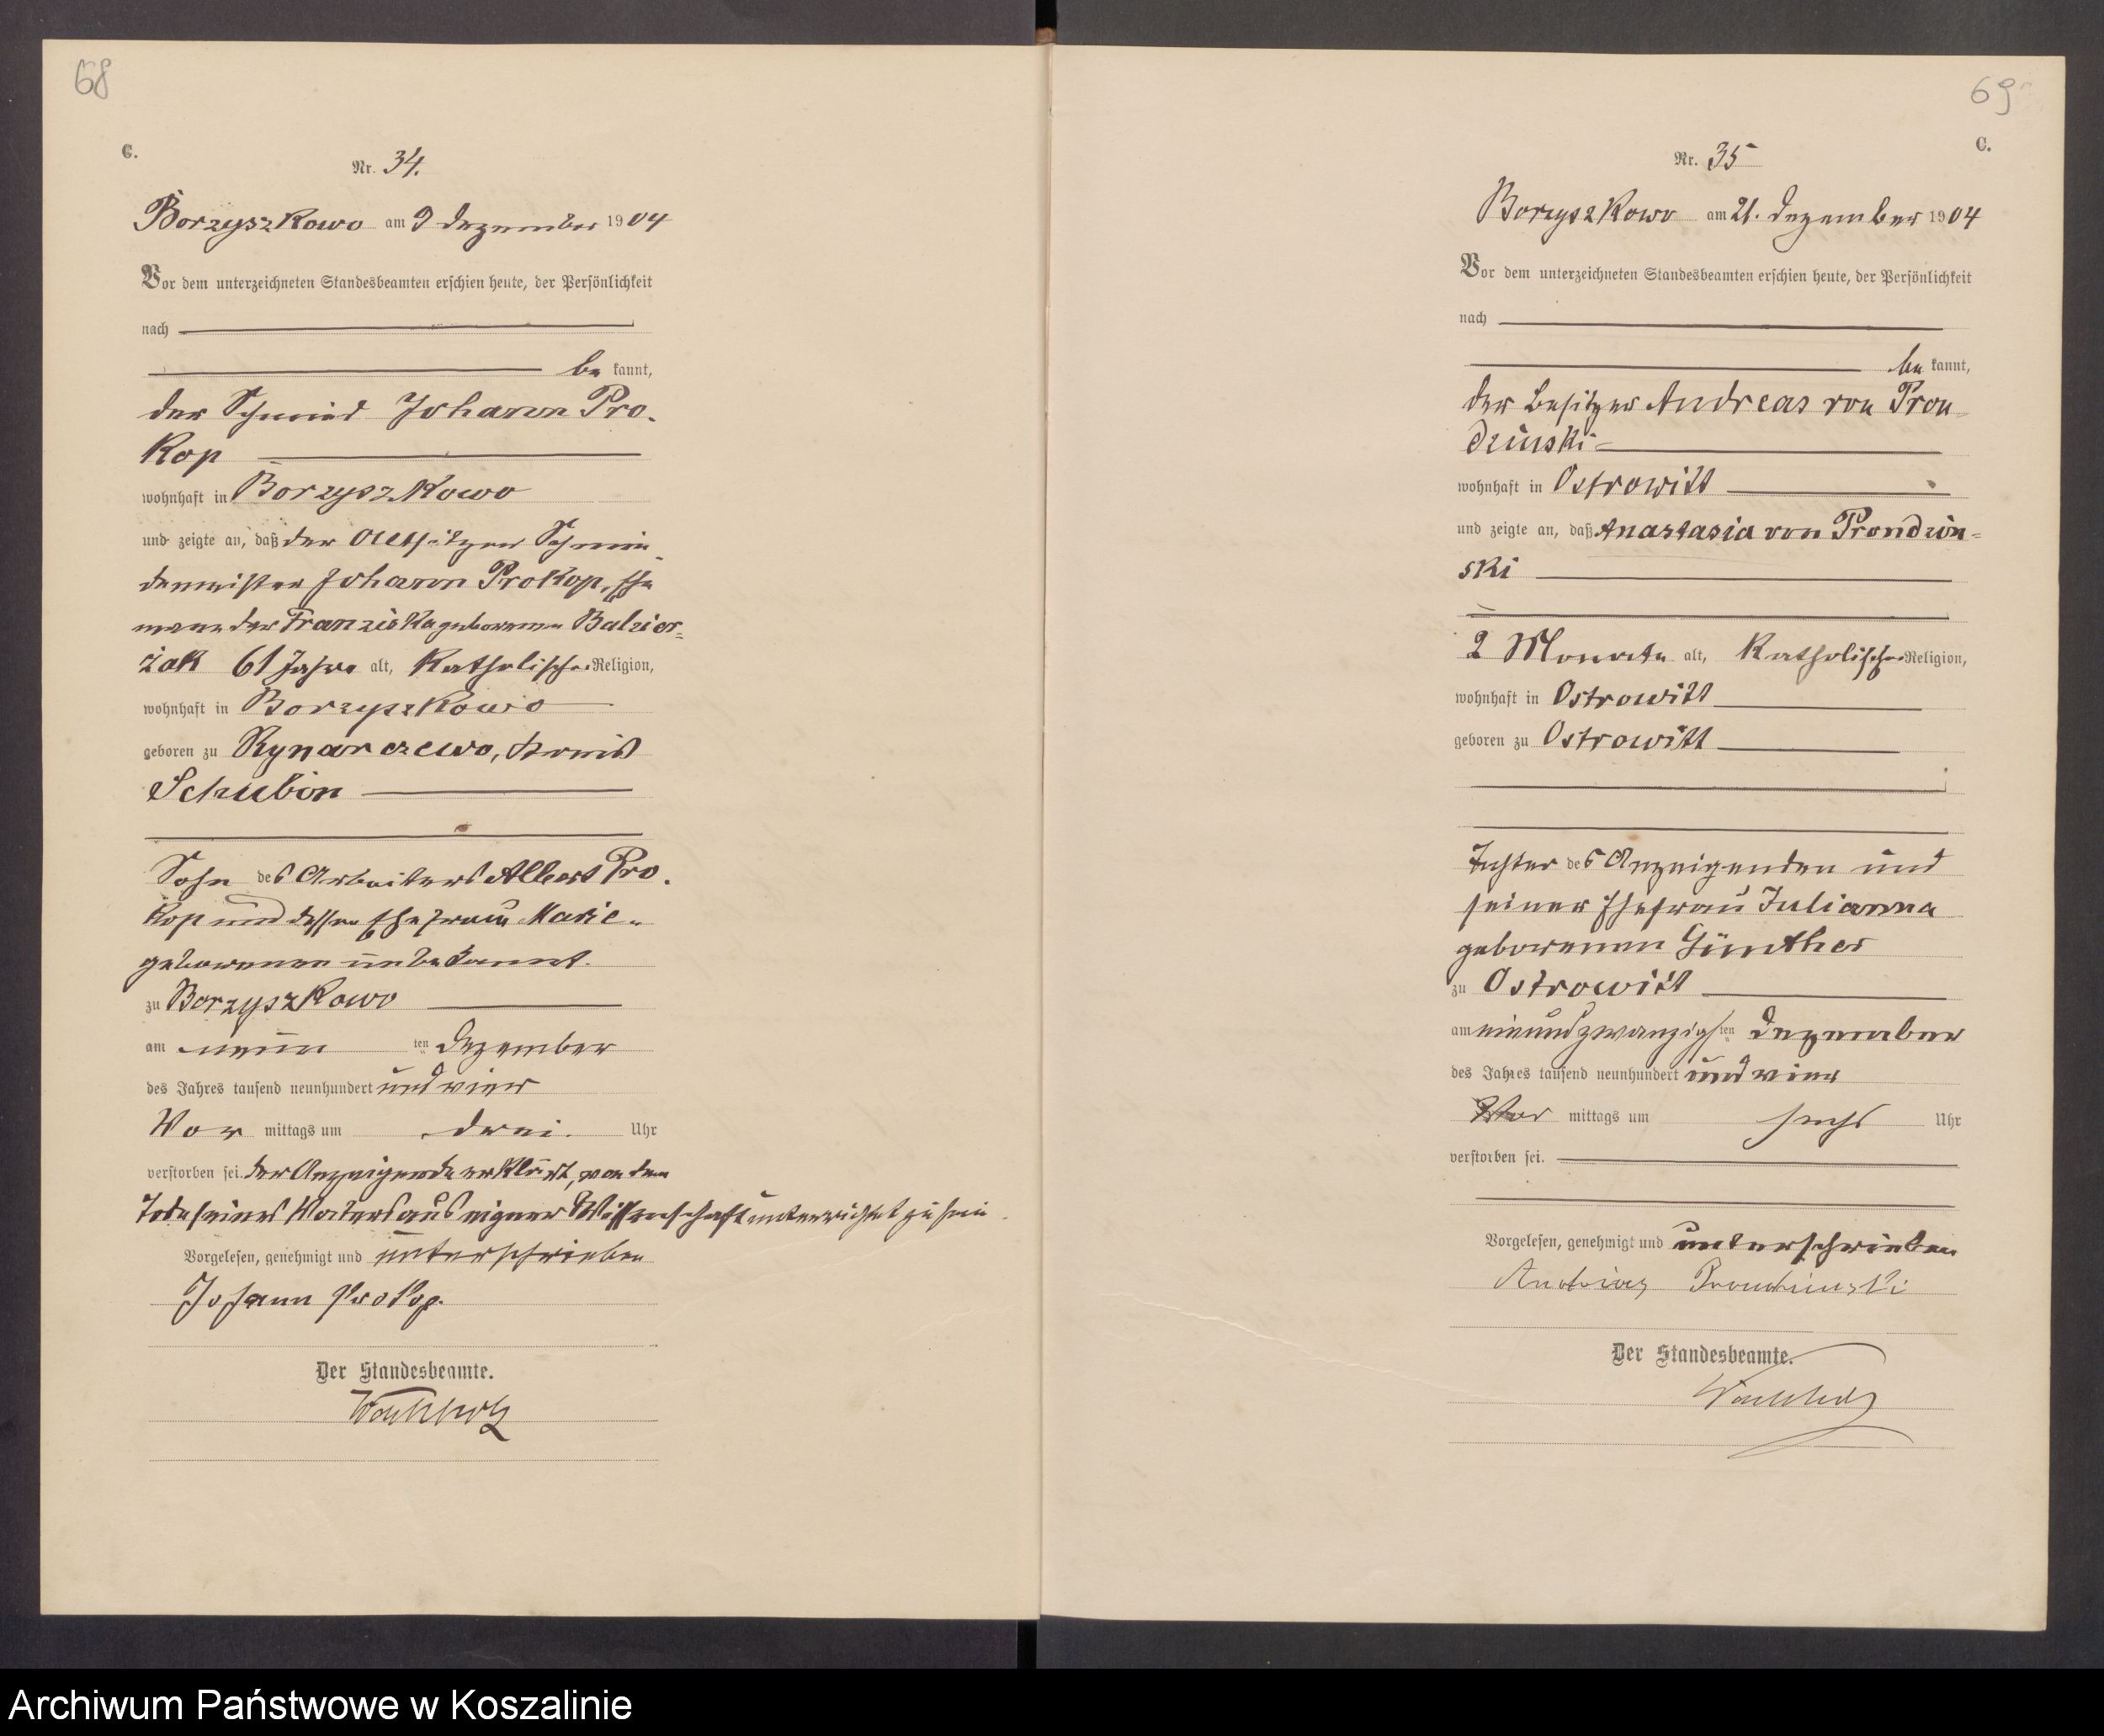 68
C.
Nr. 34.
Borzyszkowo am 9 Dezember 1904
Vor dem unterzeichneten Standesbeamten erschien heute, der Persönlichkeit
nach
be kannt,
der Schmied Johann Pro-
kop
wohnhaft in Borzyszkowo
und zeigte an, daß der Altsitzer Schmie-
demeister Johann Prokop, Ehe
mann der Franziska geborenen Balzier=
zak 61 Jahre alt, katholischer Religion,
wohnhaft in Borzyszkowo
geboren zu Rynarczewo, Kreis
Schubin
Sohn des Arbeiters Albert Pro-
kop und dessen Ehefrau Marie
geborenen unbekannt.
zu Borzyszkowo
am neun ten Dezember
des Jahres tausend neunhundert und vier
Vor mittags um drei Uhr
verstorben sei. Der Anzeigende erklärt, von dem
Tode seines Vaters aus eigner Wissenschaft unterrichtet zu sein.
Vorgelesen, genehmigt und unterschrieben
Johann Prokop.
Der Standesbeamte.
69
C.
Nr. 35
Borzyszkowo am 21. Dezember 1904
Vor dem unterzeichneten Standesbeamten erschien heute, der Persönlichkeit
nach
be kannt,
der Besitzer Andreas von Pron=
dzinski
wohnhaft in Ostrowitt
und zeigte an, daß Anastasia von Prondzin=
ski
2 Monate alt, katholischer Religion,
wohnhaft in Ostrowitt
geboren zu Ostrowitt
Tochter des Anzeigenden und
seiner Ehefrau Julianna
geborenen Günther
zu Ostrowitt
am einundzwanzigsten Dezember
des Jahres tausend neunhundert und vier
Vor mittags um sechs Uhr
verstorben sei.
Vorgelesen, genehmigt und unterschrieben
Andreas Prondzinski
Der Standesbeamte.
Archiwum Państwowe w Koszalinie